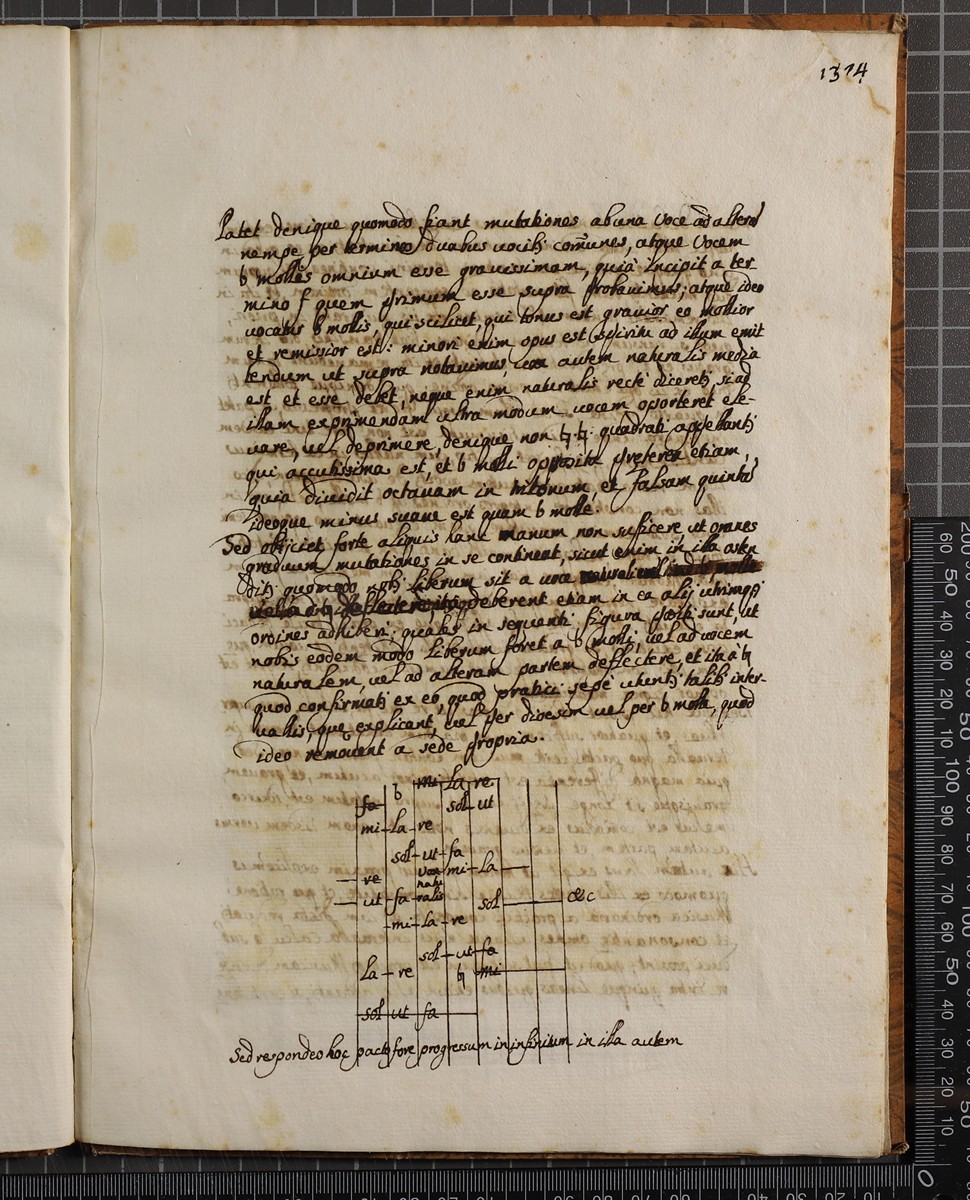 1374
Patet denique quomodo fiant mutationes ab una voce ad alteram
nempe per terminos duabus vocibꝫ com̃unes, atque Vocem
b molles omnium esse gravissimam, quià Incipit a ter
mino f quem primum esse supra probavimus; atque ideo
vocatus b mollis, qui scilicet, qui tonus est gravior eo mollior
et remissior est: minori enim opus est spiritu ad illum emit
tendum ut supra notavimus, autem naturalis media
est et esse debet, neque enim naturalis rectè diceretꝫ, si ad
illam exprimendam ultra modum vocem oporteret ele-
vare, vel deprimere, denique non ♮. ♮. quadrati appellantꝫ
qui accutissima est, et b molli opposita preterea etiam,
quia dividit octavam in tritonum, et falsam quintā
ideoque minus suave est quam b molle.
Sed objiciet forte aliquis hanc manum non sufficere ut omnes
graduum mutationes in se contineat, sicut enim in illa osten
ditꝫ quomodo nobꝫ liberum sit a voce
deberent etiam in ea alij utrimqꝫ
ordines adhiberi, quales in sequenti figura positi sunt, ut
nobis eodem modo liberum foret a b molli, vel ad vocem
naturalem, vel ad alteram partem deflectere, et ita à ♮
quod confirmatꝫ ex eo, quod pratici sepè utuntꝫ talibꝫ inter-
vallis, que explicant, vel per diœsim vel per b molle, quod
ideo removent a sede propria.
b mi la re
fa sol ut
mi la re
sol ut fa
vox mi la
re natu
ut fa ralis sol &c
mi la re
sol ut fa
la re ♮ mi
sol ut fa
Sed respondeo hoc pacto fore progressum in infinitum in illa autem